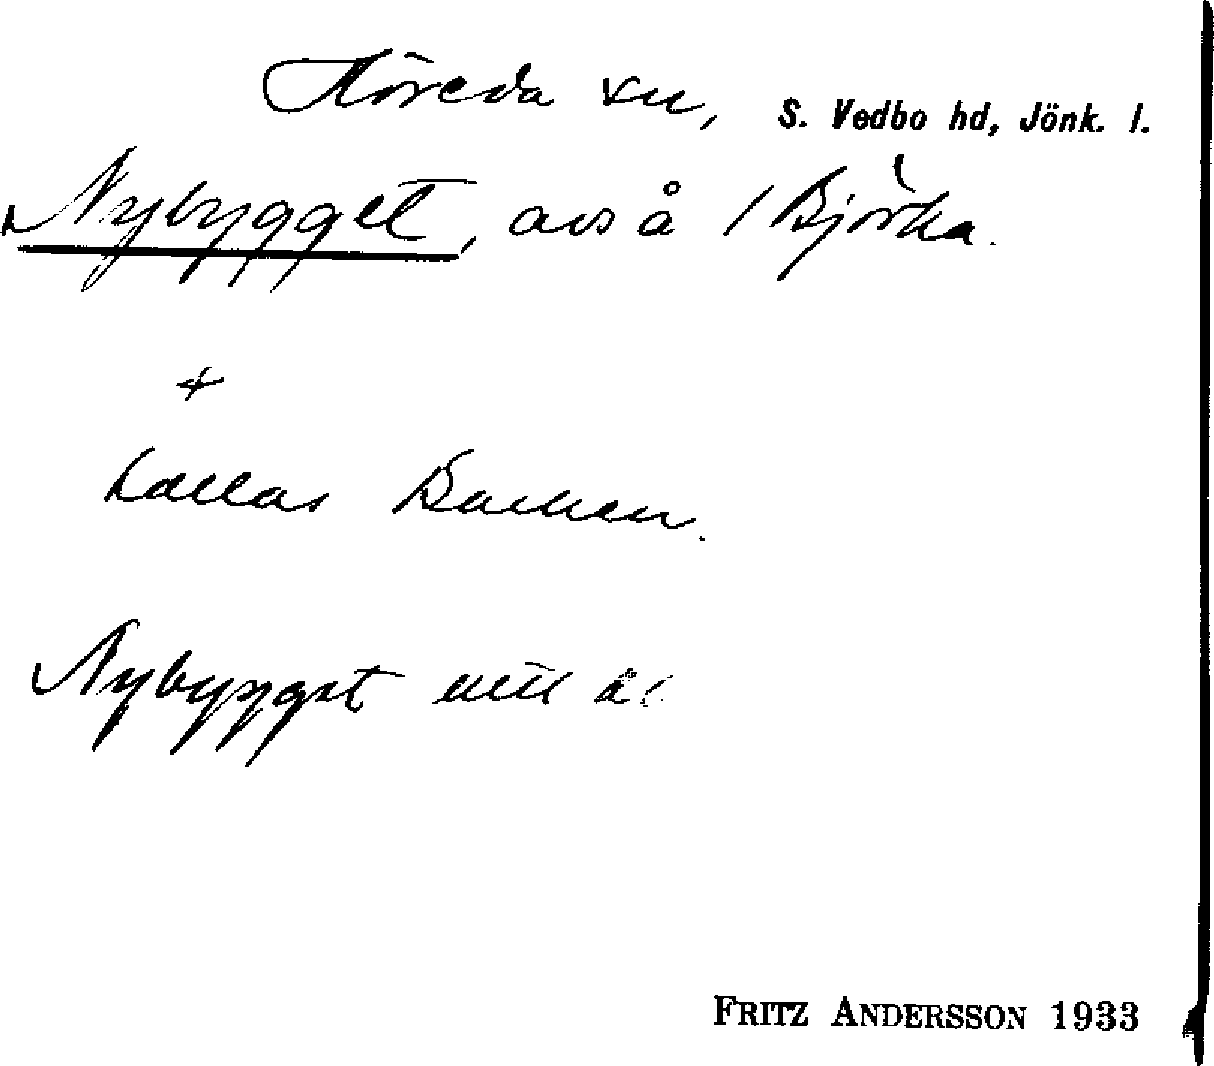 Höreda sn, S. Vedbo hd, Jönk. l.
Nybygget, avs å / Björka.
+
kallas Backen.
Nybygget
FRITZ ANDERSSON 1933